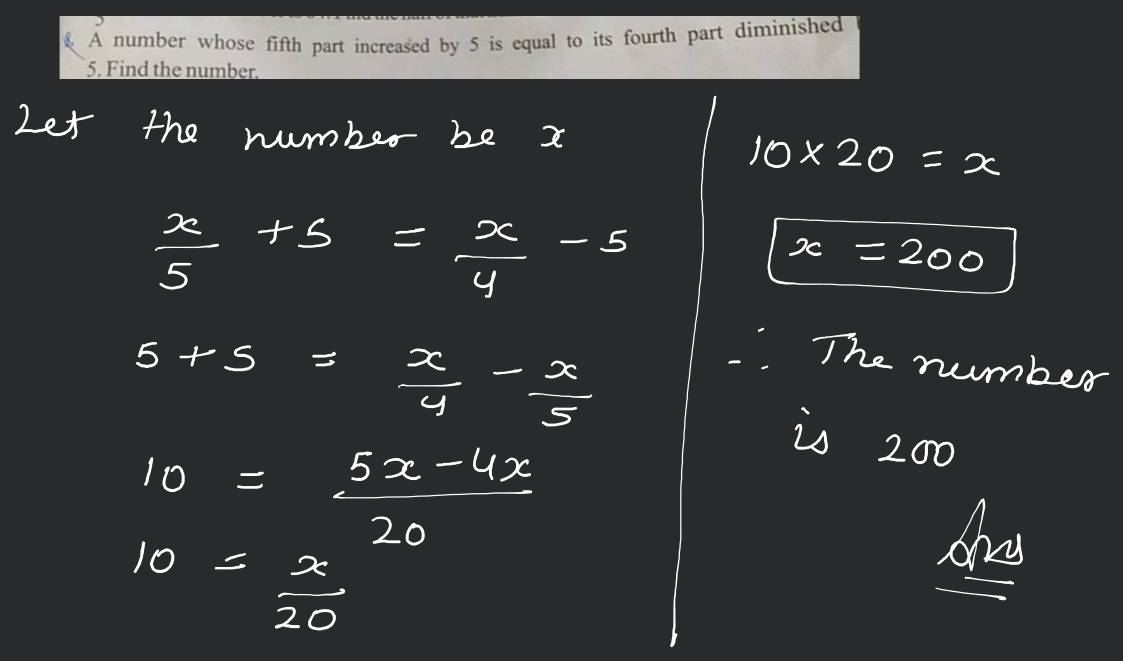 8. A number whose fifth part increased by 5 is equal to its fourth part diminished
5. Find the number.
Let the number be x
x/5 + 5 = x/4 - 5
5 + 5 = x/4 - x/5
10 = 5x - 4x/20
10 = x/20
10 × 20 = x
x = 200
∴ The number
is 200
Ans